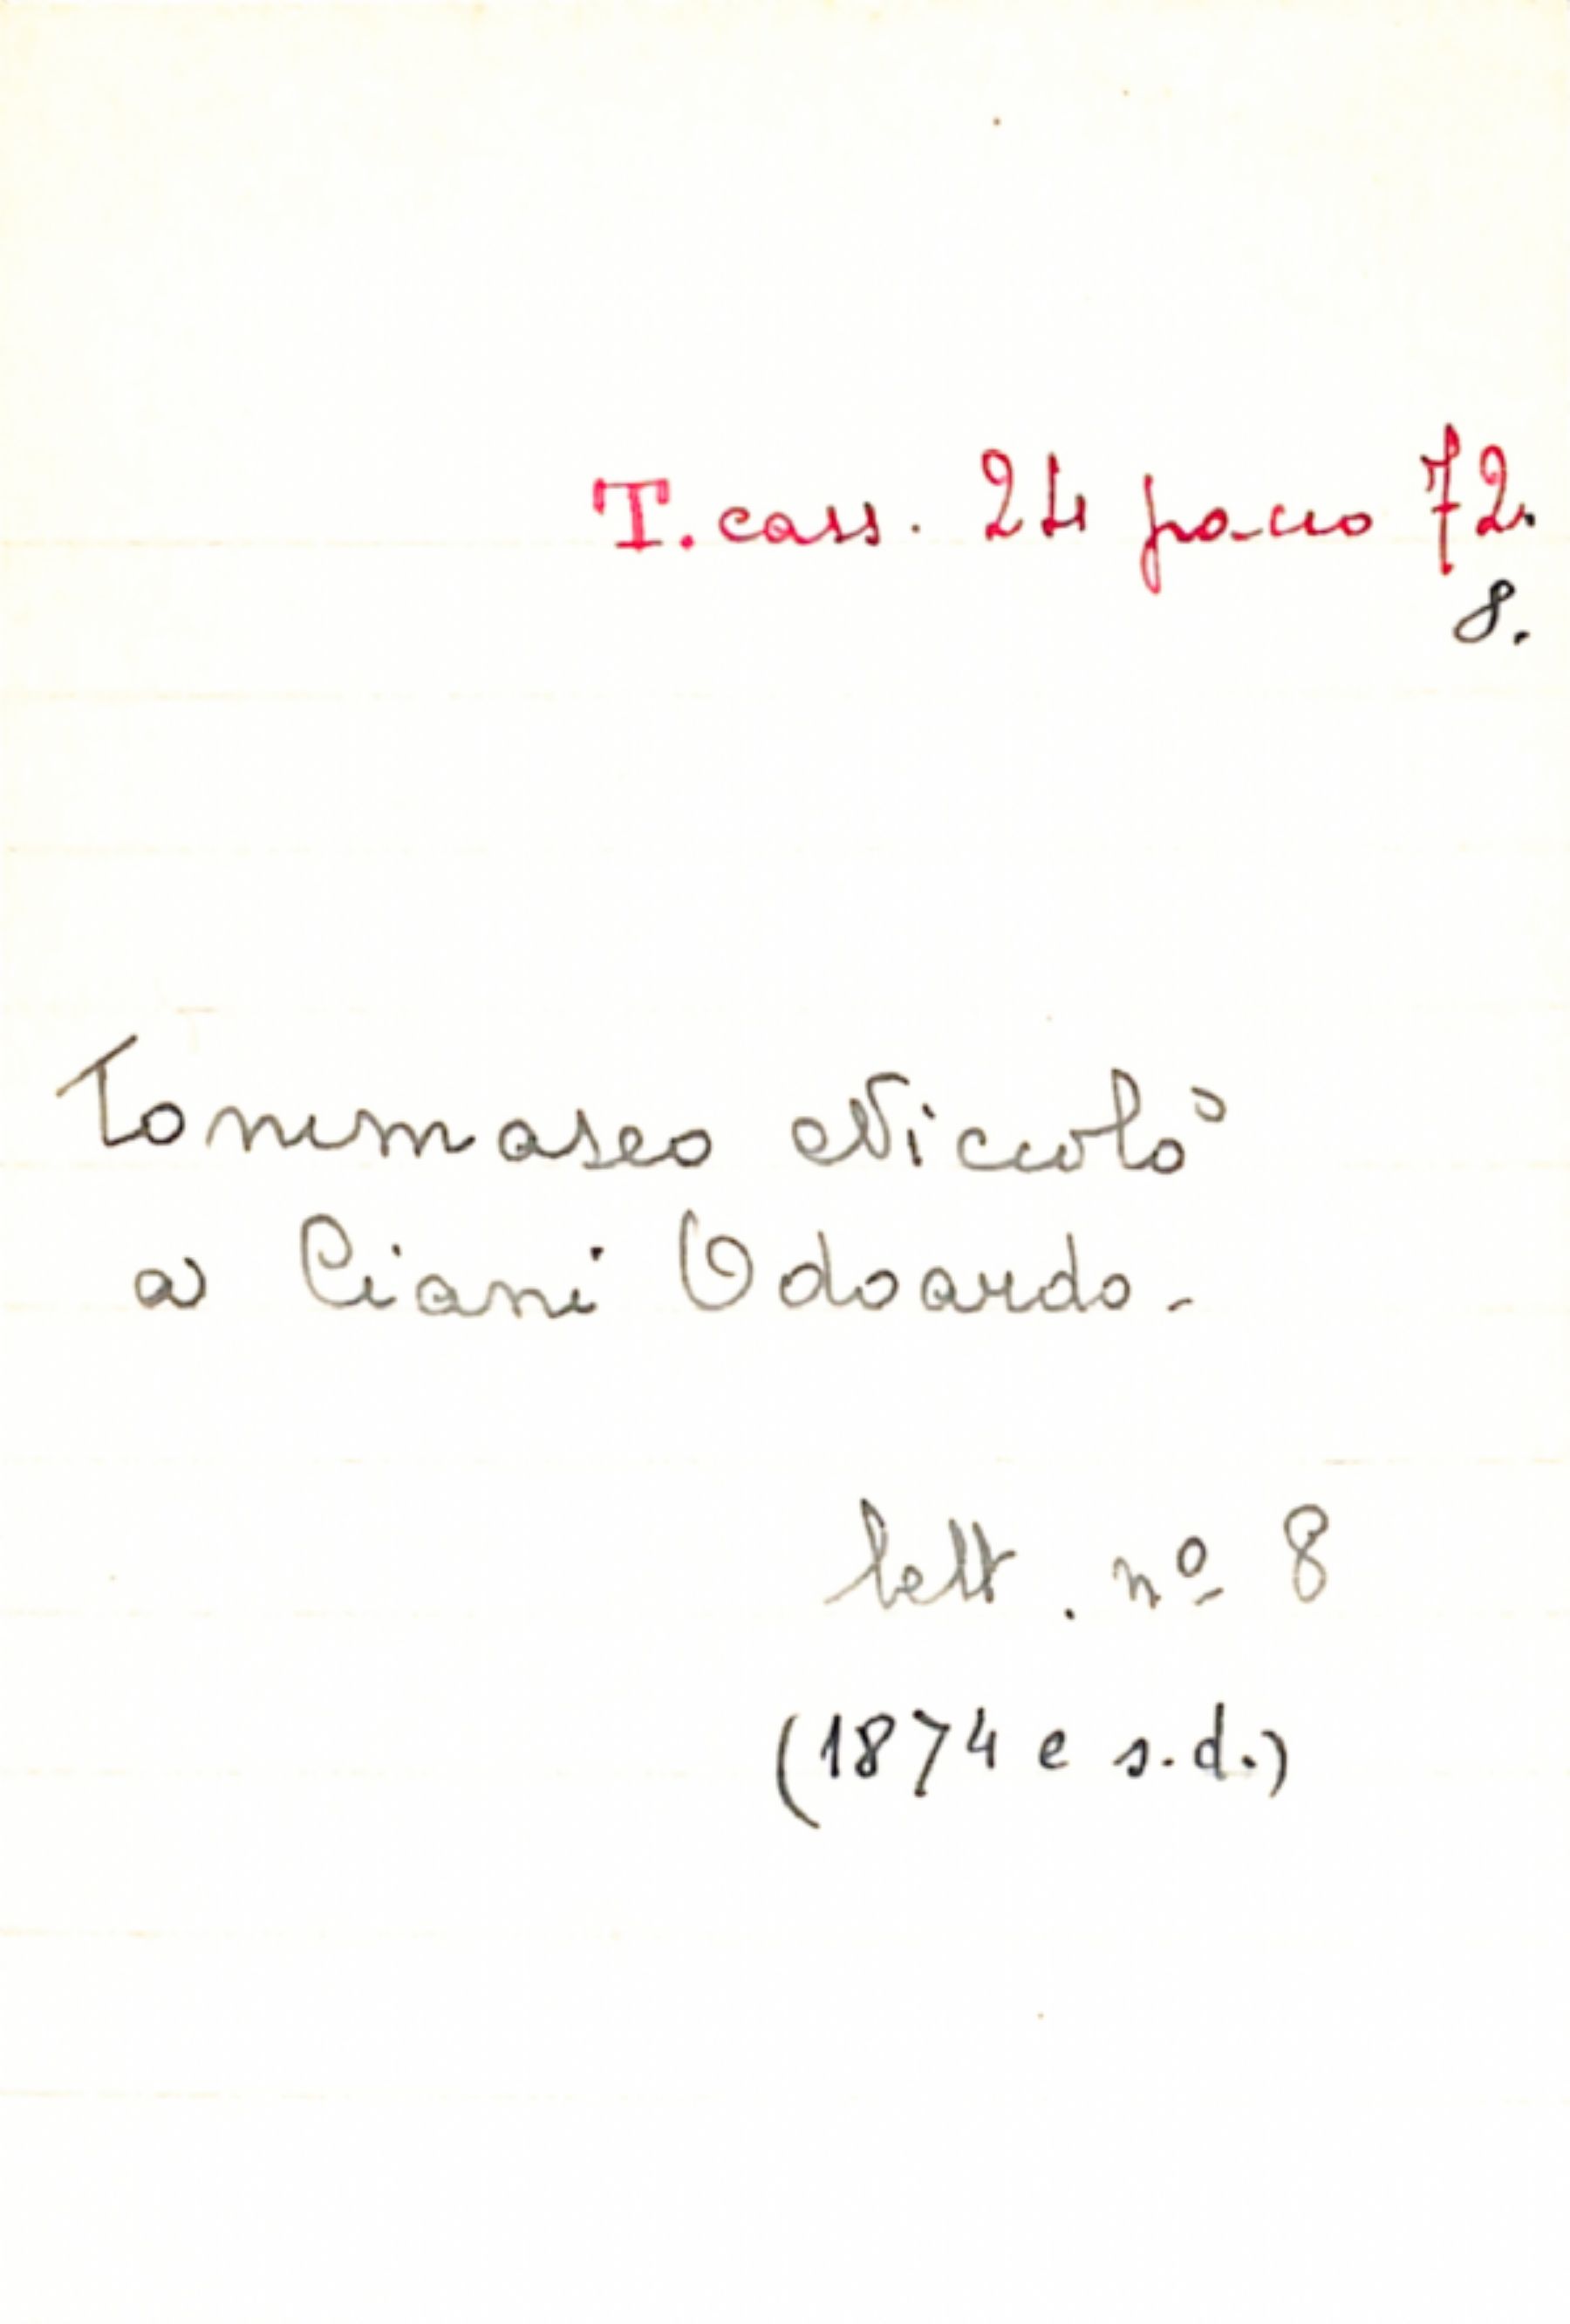 T. cass. 24 pacco 72.
8.
Tommaseo Niccolò
a Ciani Odoardo.
lett. nº 8
(1874 e s.d.)